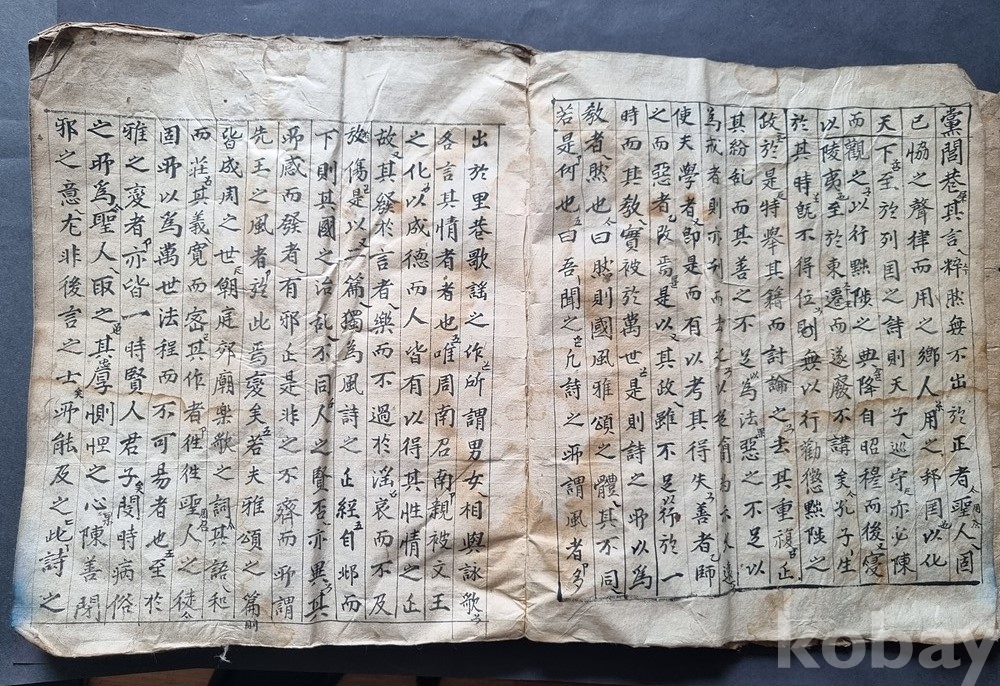 黨閭巷其言粹然無不出於正者聖人固
已恊之聲律而用之鄉人用之邦国以化
天下至於列国之詩則天子巡守亦必陳
而觀之以行黜陟之典降自昭穆而後寖
以陵夷至於東遷而遂廢不講矣孔子生
於其時旣不得位則無以行勸懲黜陟之
政於是特舉其籍而討論之去其重複正
其紛乱而其善之不足以為法惡之不足以
為戒者則亦刋而去之以從簡
使夫學者即是而有以考其得失善者師
之而惡者改焉是以其政雖不足以行於一
時而其教實被於萬世是則詩之所以為
教者然也曰然則國風雅頌之體其不同
若是何也曰吾聞之凡詩之所謂風者多
出於里巷歌謠之作所謂男女相與詠歌
各言其情者者也唯周南召南親被文王
之化以成德而人皆有以得其性情之正
故其發於言者樂而不過於淫哀而不及
於傷是以二篇獨為風詩之正經自邶而
下則其國之治乱不同人之賢否亦異其
所感而發者有邪正是非之不齊而所謂
先王之風者於此焉變矣若夫雅頌之篇
皆成周之世朝庭郊廟樂歌之詞其語和
而莊其義寬而密其作者徃徃聖人之徒
固所以為萬世法程而不可易者也至於
雅之變者亦皆一時賢人君子閔時病俗
之所為聖人取之其忠厚惻怛之心陳善閉
邪之意尤非後言之士所能及之此詩之
kobay